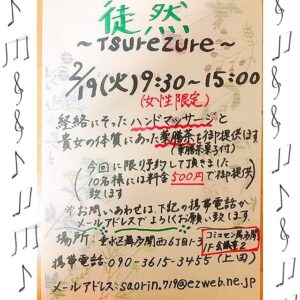 徒然
～Tsurezure～
2/19(火)9:30～15:00
(女性限定)
経絡にそったハンドマッサージと
貴女の体質にあった薬膳茶を御提供
致します
(薬膳菓子付)
今回に限り予約して頂きました
10名様には料金500円で御提供
致します
※お問いあわせは、下記の携帯電話か
メールアドレスでよろしくお願い致します
場所:垂水区舞多聞西6丁目1-3
コミュモン舞多聞
1F会議室2
携帯電話:090-3615-3455(上田)
メールアドレス:saorin.719@ezweb.ne.jp